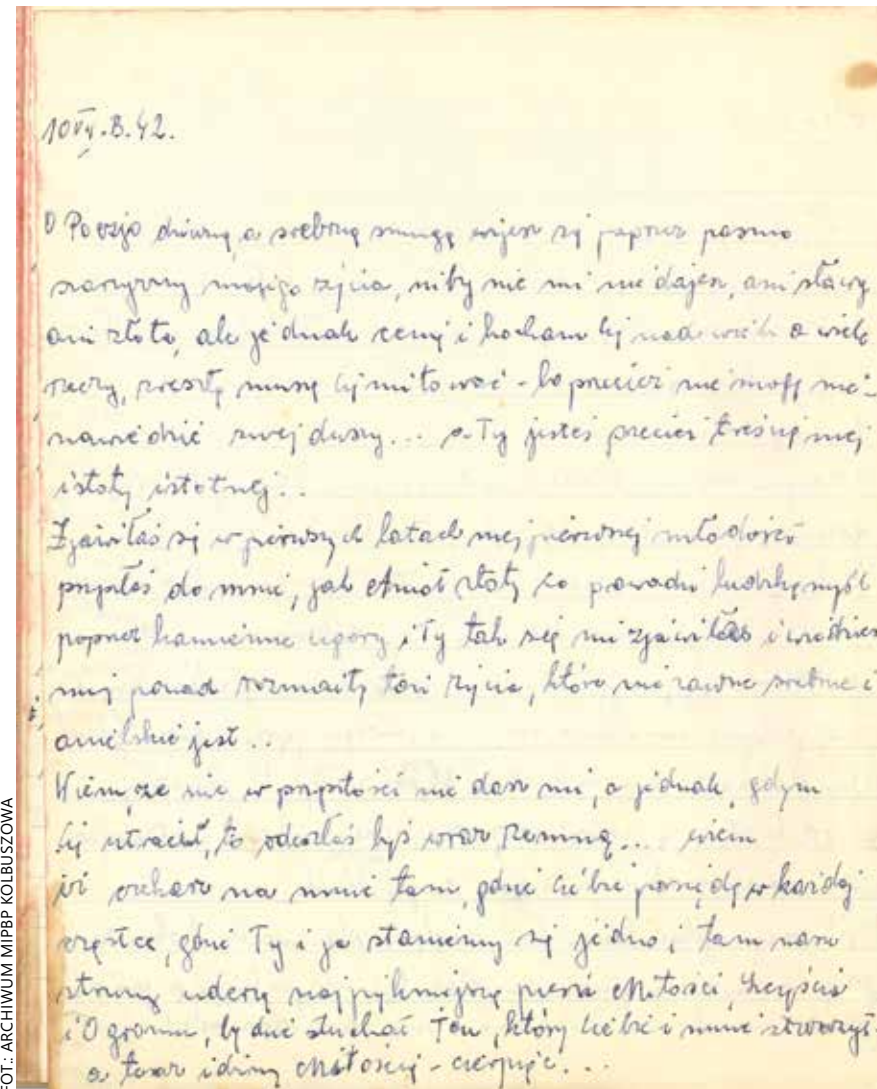 10 VII.B.42.
O Poezjo dziwną, a srebrną smugą wijesz się poprzez pasmo
szarzyzny mojego życia, niby nic mi nie dajesz, ani sławy
ani złota, ale jednak cenię i kocham Cię nad wiele a wiele
rzeczy, zresztą muszę Cię miłować - bo przecież nie mogę nie-
nawidzić swej duszy... a Ty jesteś przecież treścią mej
istoty istotnej..
Zjawiłaś się w pierwszych latach mej pierwszej młodości
przyszłaś do mnie, jak Anioł złoty co prowadzi ludzką myśl
poprzez kamienne ugory i Ty tak się mi zjawiłaś i wiedziesz
mię ponad rozmaitą toń życia, które nie zawsze srebrne i
anielskie jest..
Wiem, że nic w przyszłości nie dasz mi, a jednak, gdym
Cię utracił, to odeszłaś byś wraz ze mną... wiem
iż czekasz na mnie tam, gdzie Ciebie posiędę w każdej
cząstce, gdzie Ty i ja staniemy się jedno, i tam nasze
struny uderzą najpiękniejszą pieśń Miłości, Szczęścia
i Ogromu, będzie słuchał Ten, który Ciebie i mnie stworzył.
a teraz idźmy Miłością - cierpiąc...
FOT.: ARCHIWUM MIPBP KOLBUSZOWA